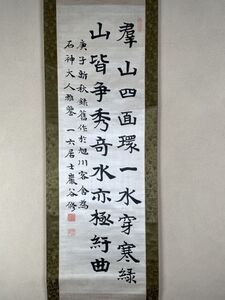 羣山四面環一水穿寒緑
山皆争秀奇水亦極紆曲
庚子新秋録舊作於旭川客舎為
石神大人雅鑒 一六居士巖谷修